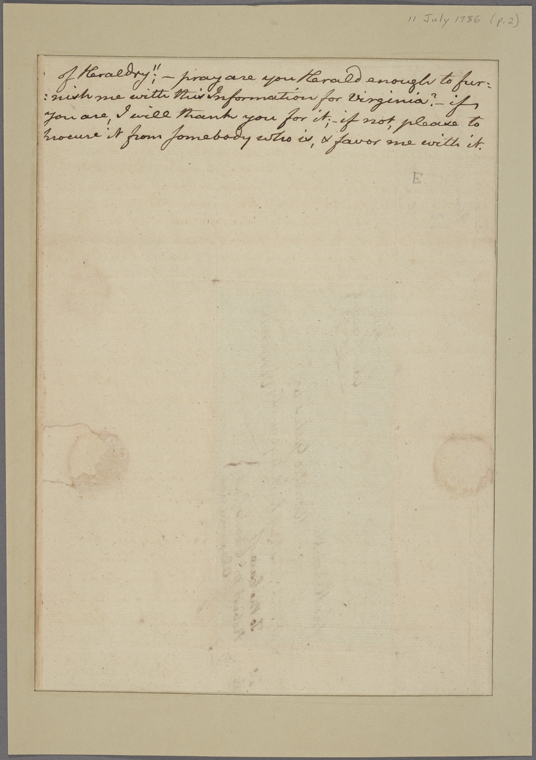 11 July 1786 (p.2)
of Heraldry". – pray are you Herald enough to fur=
=nish me with this Information for Virginia? – if
you are, I will thank you for it; – if not, please to
procure it from somebody who is, & favor me with it.
E